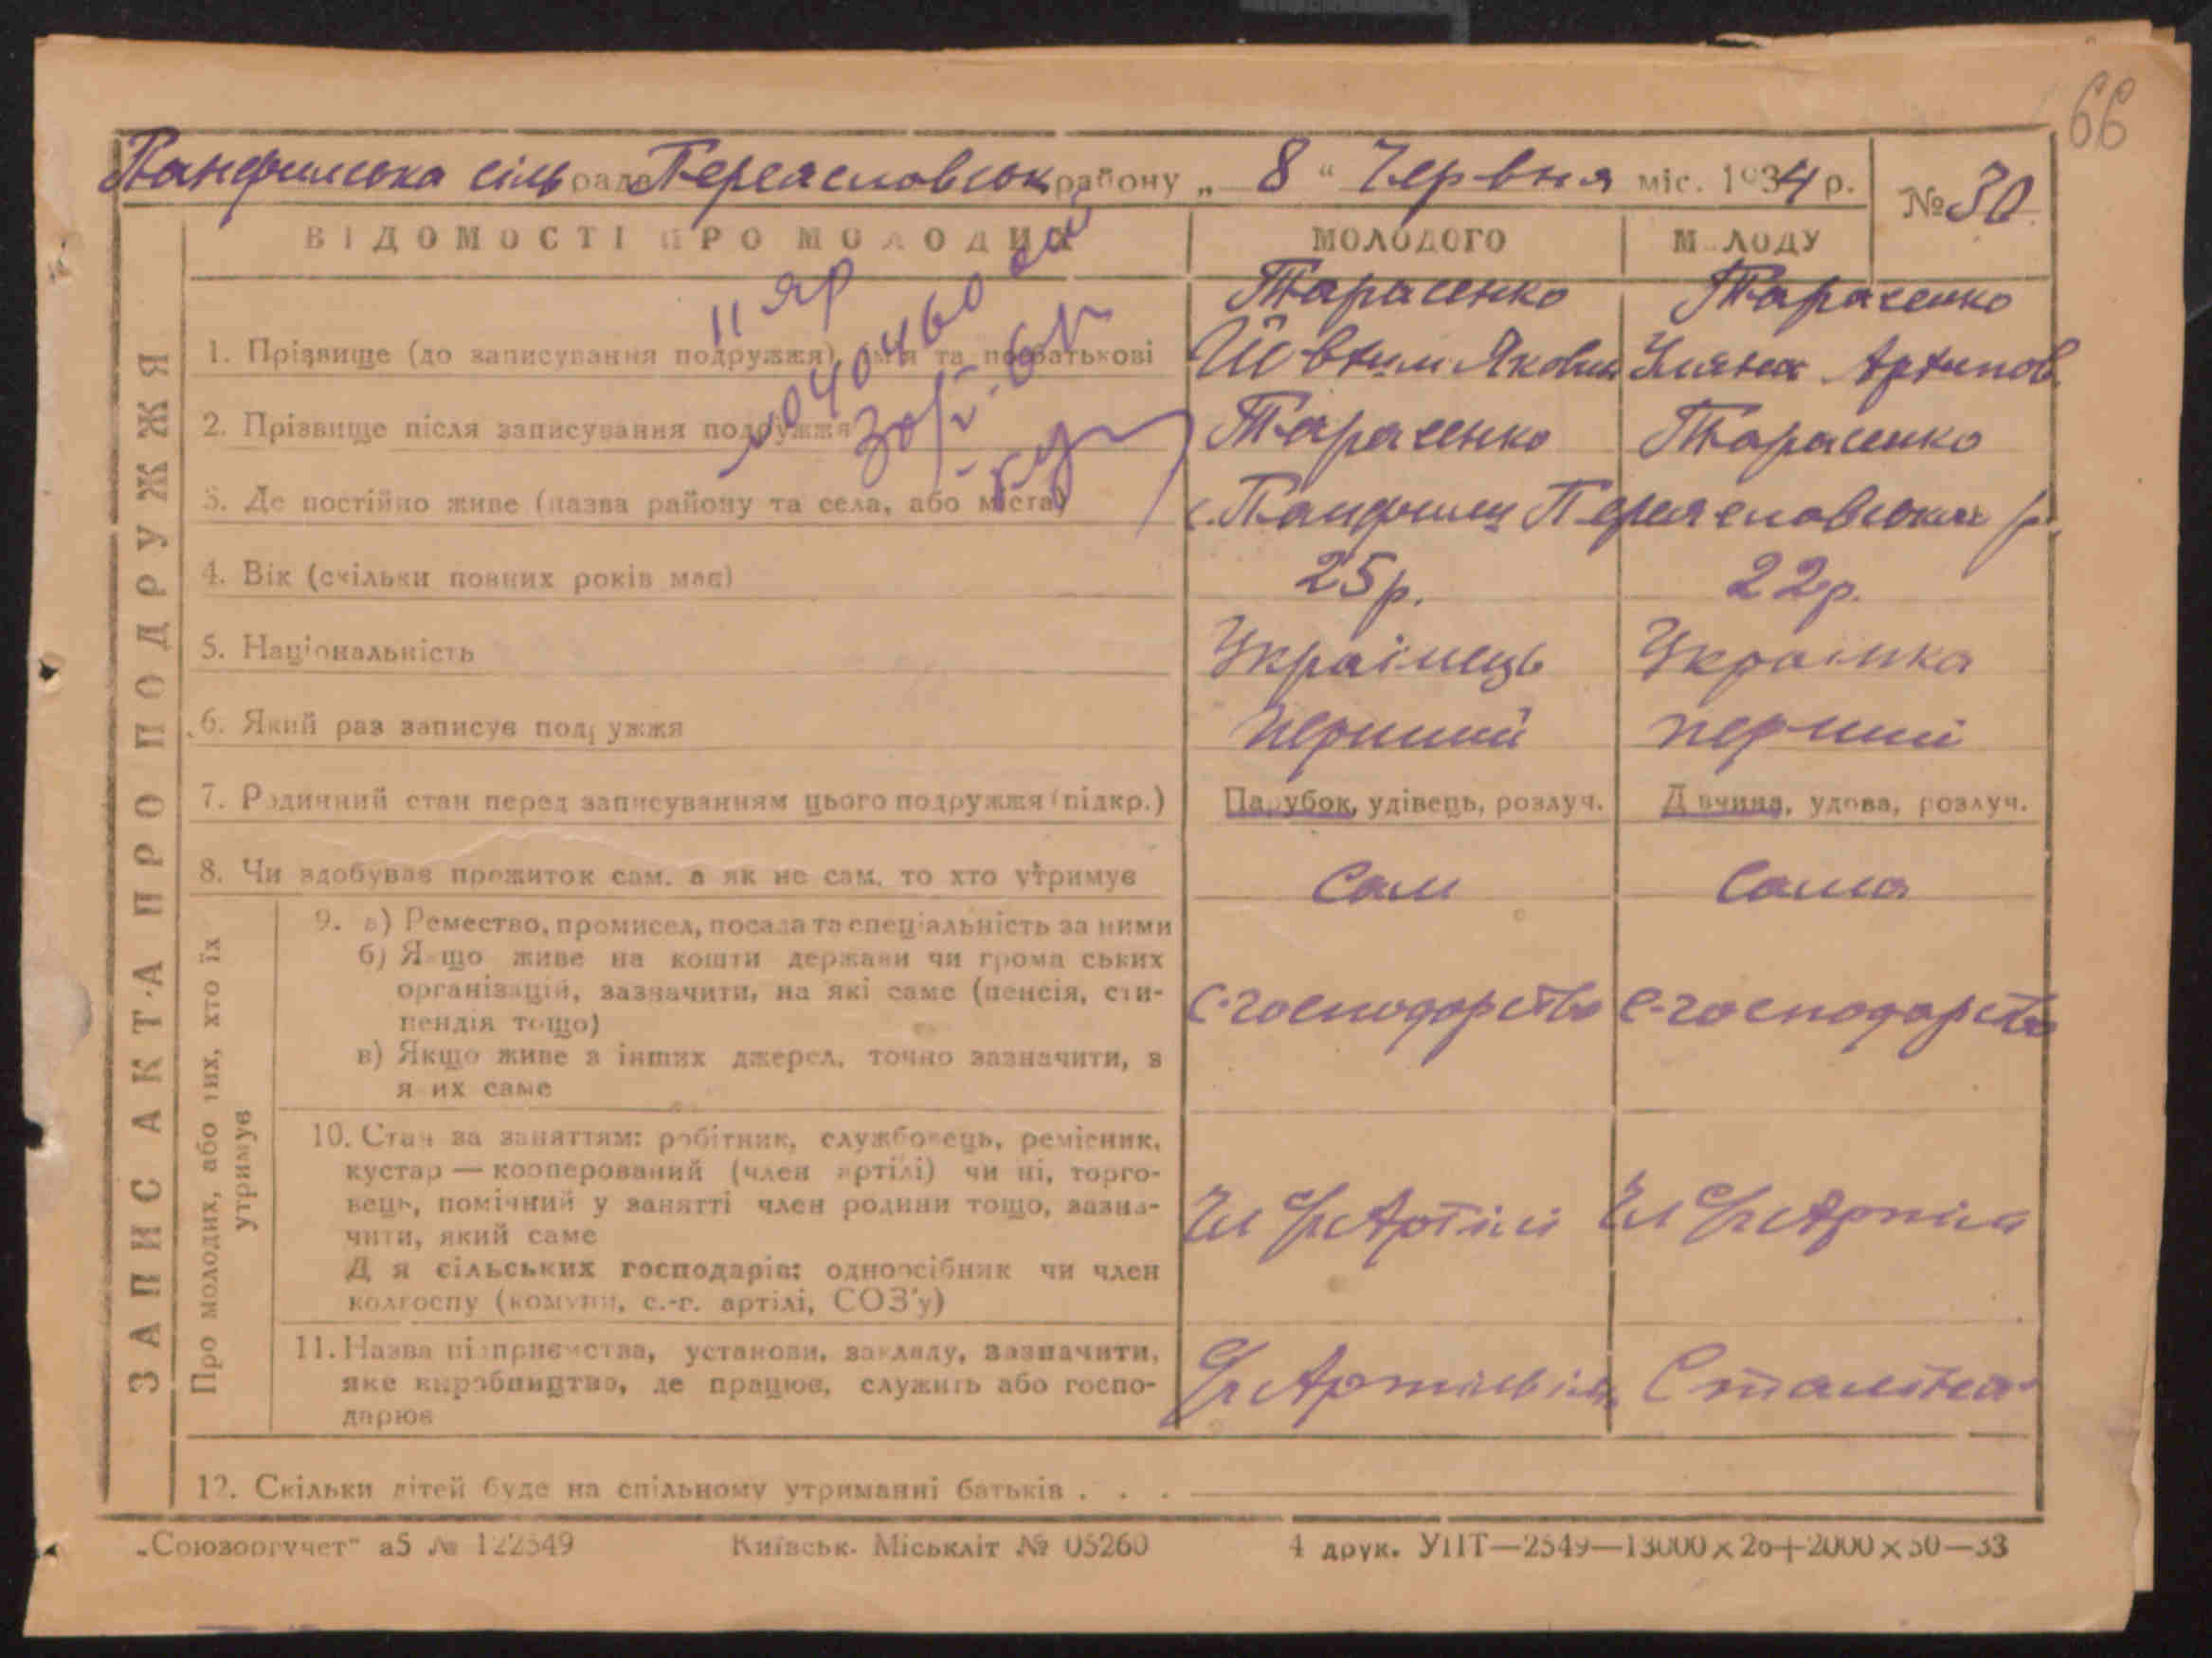 66
Панфилська сільрада Переясловськ району „ 8 “ Червня міс. 1934 р. № 30
ЗАПИС АКТА ПРО ПОДРУЖЖЯ
ВІДОМОСТІ ПРО МОЛОДИХ МОЛОДОГО МОЛОДУ
Тарасенко Тарасенко
1. Прізвище (до записування подружжя), ім'я та по батькові Йовтим Якович Уляна Архипов.
2. Прізвище після записування подружжя Тарасенко Тарасенко
3. Де постійно живе (назва району та села, або міста) с. Панфили Переясловськ р.
4. Вік (скільки повних років має) 25 р. 22 р.
5. Національність Українець Українка
6. Який раз записує подружжя перший перший
7. Родинний стан перед записуванням цього подружжя (підкр.) Парубок, удівець, розлуч. Дівчина, удова, розлуч.
8. Чи здобував прожиток сам, а як не сам, то хто утримує Сам Сама
Про молодих, або тих, хто їх утримує
9. а) Ремество, промисел, посада та спеціальність за ними
б) Якщо живе на кошти держави чи громадських
організацій, зазначити, на які саме (пенсія, сти-
пендія тощо) с-господарство с-господарство
в) Якщо живе з інших джерел, точно зазначити, з
яких саме
10. Стан за заняттям: робітник, службовець, ремісник,
кустар — кооперований (член артілі) чи ні, торго-
вець, помічний у занятті член родини тощо, зазна-
чити, який саме Чл с/г Артілі Чл с/г Артілі
Для сільських господарів: одноосібник чи член
колгоспу (комуни, с.-г. артілі, СОЗ'у)
11. Назва підприємства, установи, закладу, зазначити,
яке виробництво, де працює, служить або госпо- с/г Артіль ім. Сталіна
дарює
12. Скільки дітей буде на спільному утриманні батьків . . .
„Союзоргучет“ а5 № 122549 Київськ. Міськліт № 05260 4 друк. УПТ—2549—13000×20+2000×50—33